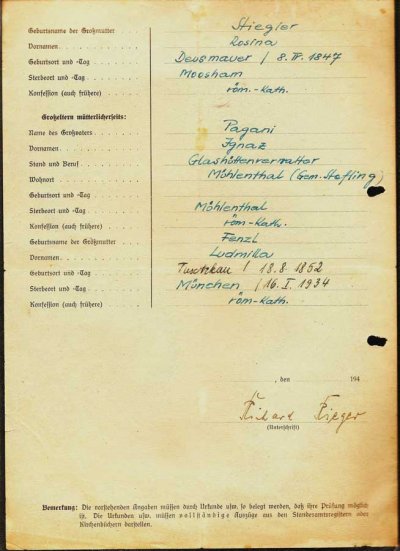 Geburtsname der Großmutter Stiegler
Vornamen Rosina
Geburtsort und -Tag Deusmauer / 8. IV. 1847
Sterbeort und -Tag Moosham
Konfession (auch frühere) röm.-kath.
Großeltern mütterlicherseits:
Name des Großvaters Pagani
Vornamen Ignaz
Stand und Beruf Glashüttenverwalter
Wohnort Mühlenthal (Gem. Stefling)
Geburtsort und -Tag
Sterbeort und -Tag Mühlenthal
Konfession (auch frühere) röm-kath.
Geburtsname der Großmutter Fenzl
Vornamen Ludmilla
Geburtsort und -Tag / 18.8 1852
Sterbeort und -Tag München / 16. I. 1934
Konfession (auch frühere) röm-kath.
, den 194
Richard Rieger
(Unterschrift)
Bemerkung: Die vorstehenden Angaben müssen durch Urkunde usw. so belegt werden, daß ihre Prüfung möglich
ist. Die Urkunden usw. müssen vollständige Auszüge aus den Standesamtsregistern oder
Kirchenbüchern darstellen.